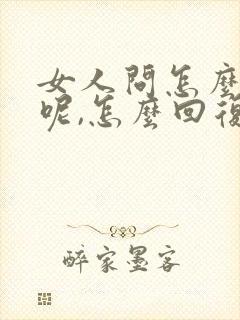 女人問怎麼
呢,怎麼回復
醉家墨客